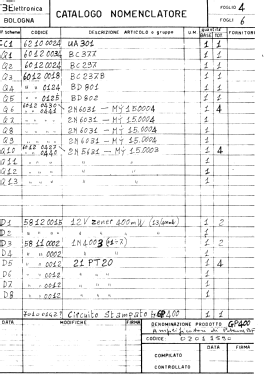 Elettronica
BOLOGNA
CATALOGO NOMENCLATORE
FOGLIO 4
FOGLI 6
N° Schema CODICE DESCRIZIONE ARTICOLO o gruppo U.M. quantità BASE TOT FORNITORE
CC1 6210 0024 UA301 1 1
Q1 6012 0034 BC377 1 1
Q2 6012 0024 BC297 1 1
Q3 6012 0018 BC237B 1 1
Q4 " " 0124 BD801 1 1
Q5 " " 0125 BD802 1 1
Q6 6012 0430 0440 2N6031 - MY 15.0004 1 4
Q7 " " " 2N6031 - MY 15.0004 1
Q8 " " " 2N6031 - MY 15.0004 1
Q9 " " " 2N6031 - MY 15.0004 1
Q10 6012 0427 0441 2N5631 - MY 15.0003 1 4
Q11 " " " 1
Q12 " " " 1
Q13 " " " 1
D1 5812 0015 12V zener 400mW 1 2
D2 " " " 1
D3 5811 0002 1N4003 1 2
D4 " " 0002 " " 1
D5 " " 0012 21PT20 1 4
D6 " " 0012 " " 1
D7 " " 0012 " " 1
D8 " " 0012 " " 1
Circuito Stampato GP400 1 1
DATA MODIFICHE FIRMA
DENOMINAZIONE PRODOTTO GP400
Amplificatore di Potenza
CODICE:
DATA FIRMA
COMPILATO
CONTROLLATO